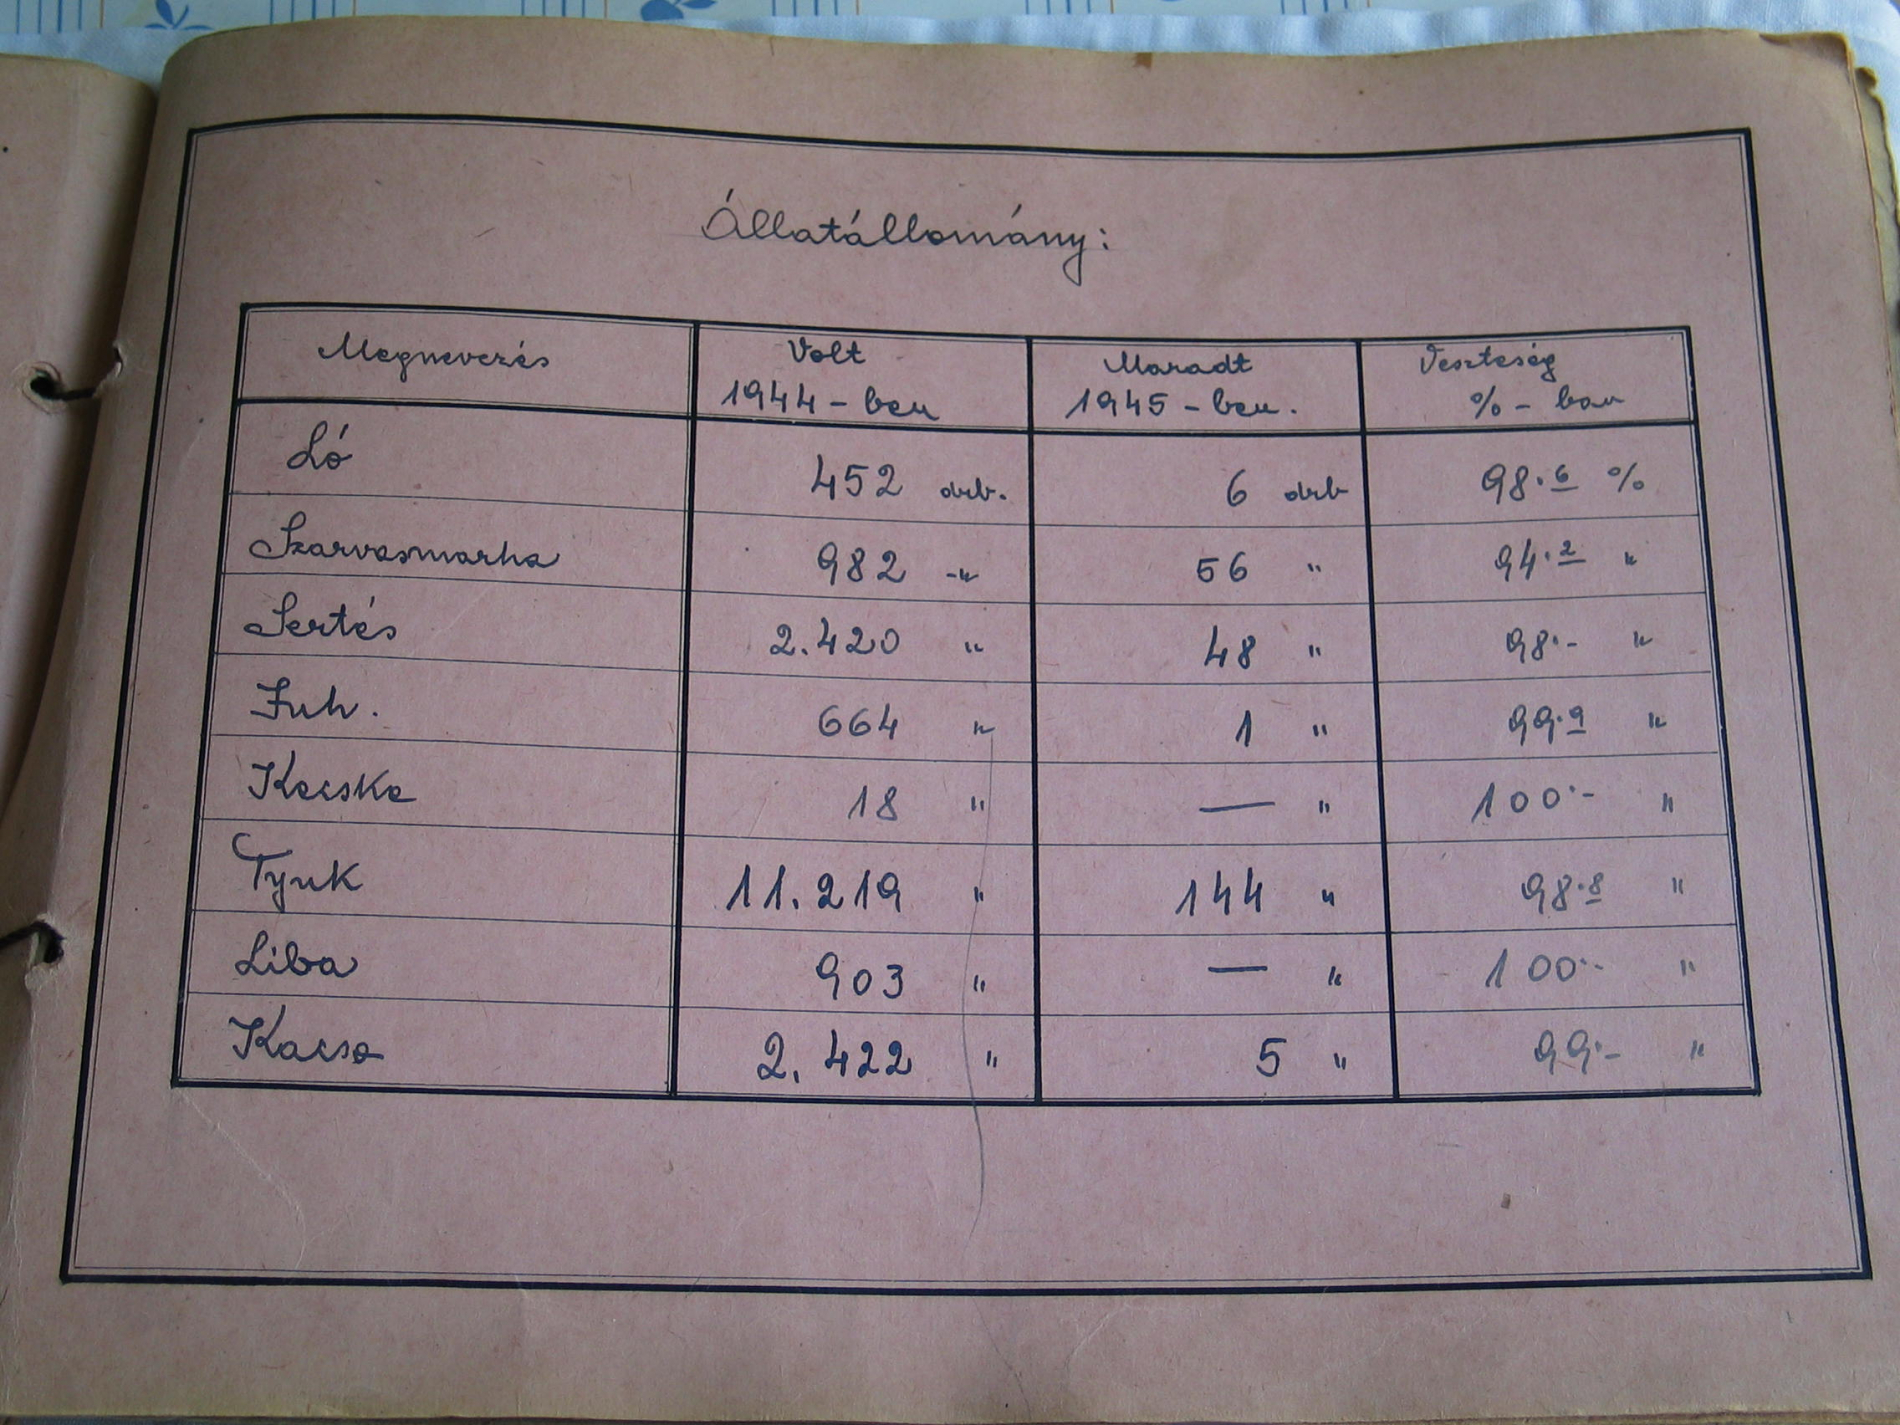 Állatállomány:
Megnevezés Volt 1944-ben Maradt 1945-ben. Veszteség %-ban
Ló 452 drb. 6 drb 98.6 %
Szarvasmarha 982 -" 56 " 94.2 "
Sertés 2.420 " 48 " 98.- "
Juh. 664 " 1 " 99.9 "
Kecske 18 " — " 100.- "
Tyuk 11.219 " 144 " 98.8 "
Liba 903 " — " 100.- "
Kacsa 2.422 " 5 " 99.- "